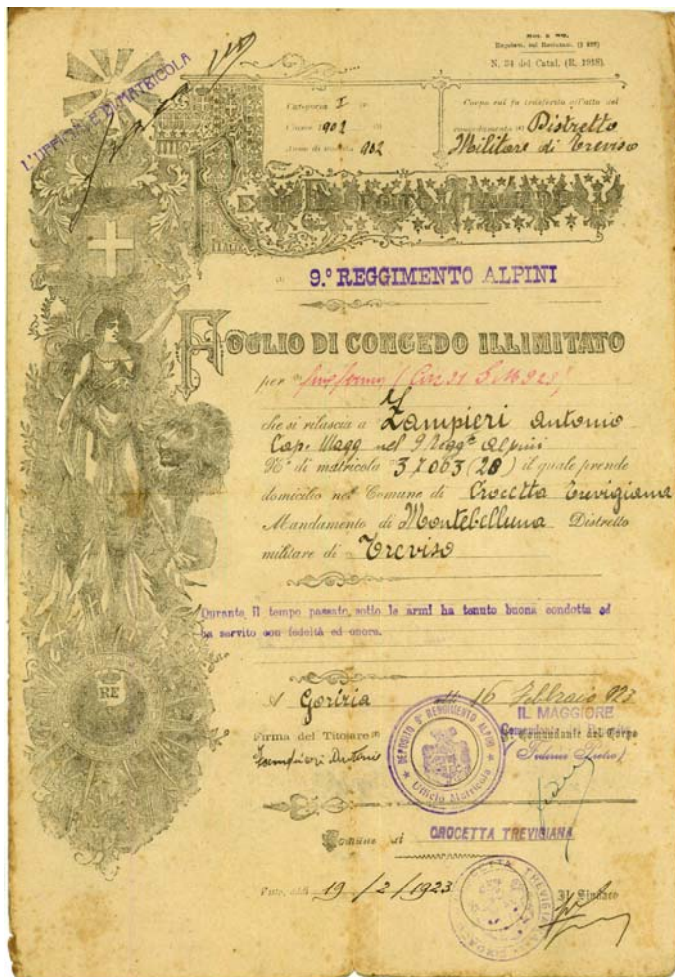 N. 34 del Catal. (R. 1918).
L'UFFICIALE DI MATRICOLA
Categoria I
Classe 1902
Anno di 902
Corpo cui fu trasferto all'atto del
Distretto
Militare di Treviso
REGIO ESERCITO ITALIANO
9.º REGGIMENTO ALPINI
FOGLIO DI CONGEDO ILLIMITATO
per
che si rilascia a Zampieri Antonio
Cap. Magg nel 9 Regg.to Alpini
N.º di matricola 37063 (28) il quale prende
domicilio nel Comune di Crocetta Trevigiana
Mandamento di Montebelluna Distretto
militare di Treviso
Durante il tempo passato sotto le armi ha tenuto buona condotta ed
ha servito con fedeltà ed onore.
RE
A Gorizia 16 Febbraio 923
IL MAGGIORE
Firma del Titolare
Il Comandante del Corpo
Zampieri Antonio
DEPOSITO 9º REGGIMENTO ALPINI
Ufficio Matricola
Comune di CROCETTA TREVIGIANA
19/2/1923
Il Sindaco
CROCETTA TREVIGIANA